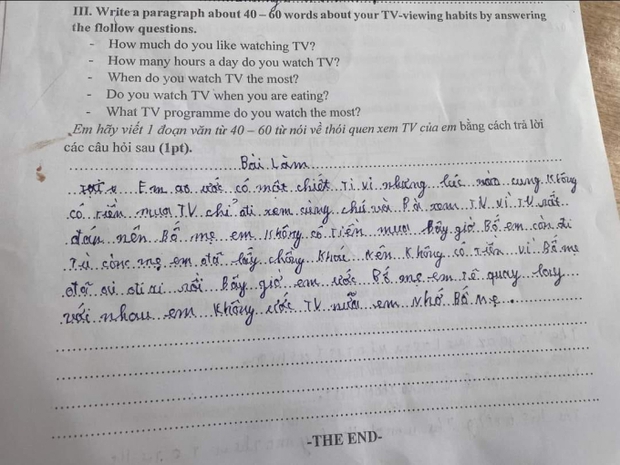 III. Write a paragraph about 40 – 60 words about your TV-viewing habits by answering
the flollow questions.
- How much do you like watching TV?
- How many hours a day do you watch TV?
- When do you watch TV the most?
- Do you watch TV when you are eating?
- What TV programme do you watch the most?
Em hãy viết 1 đoạn văn từ 40 – 60 từ nói về thói quen xem TV của em bằng cách trả lời
các câu hỏi sau (1pt).
Bài Làm
Em ao ước có một chiết Ti vi nhưng lúc nào cung không
có tiền mua TV chỉ đi xem cùng chú và Bà xem TV vì TV rất
đắt nên Bố mẹ em không có tiền mua bây giờ Bố em còn đi
Tù còng mẹ em đã lấy chồng khác nên không có tiền vì Bố mẹ
đã đi rồi Bây giờ em ước Bố mẹ em quay lay
với nhau em không ước TV nữa em nhớ Bố Mẹ
-THE END-